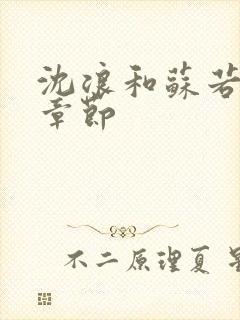 沈浪和蘇若
章節
不二原理夏